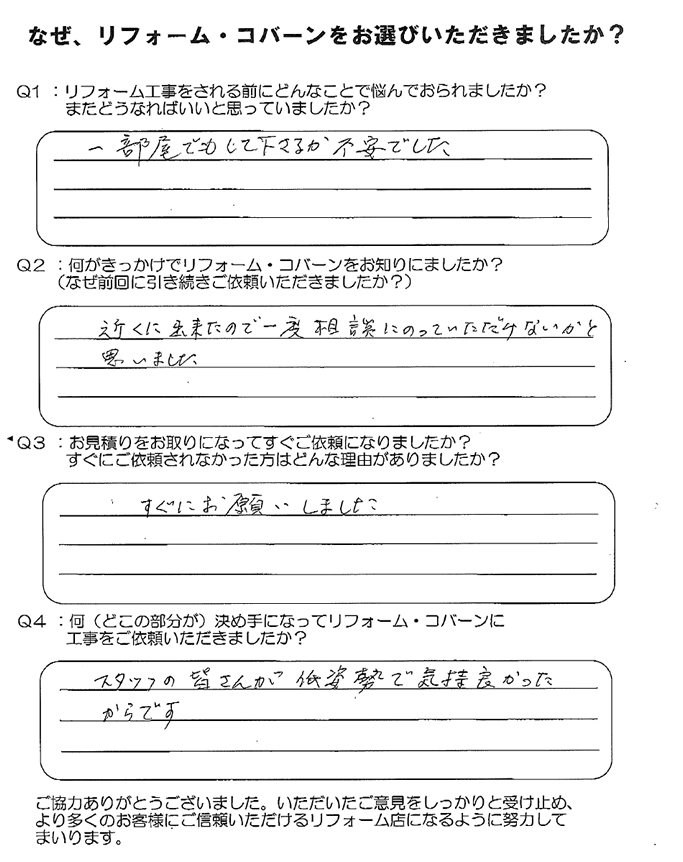 なぜ、リフォーム・コバーンをお選びいただきましたか？
Q1 ：リフォーム工事をされる前にどんなことで悩んでおられましたか？
またどうなればいいと思っていましたか？
一部屋でもして下さるか不安でした
Q2 ：何がきっかけでリフォーム・コバーンをお知りにましたか？
（なぜ前回に引き続きご依頼いただきましたか？）
近くに出来たので一度相談にのっていただけないかと
思いました
Q3 ：お見積りをお取りになってすぐご依頼になりましたか？
すぐにご依頼されなかった方はどんな理由がありましたか？
すぐにお願いしました
Q4 ：何（どこの部分が）決め手になってリフォーム・コバーンに
工事をご依頼いただきましたか？
スタッフの皆さんが低姿勢で気持良かった
からです
ご協力ありがとうございました。いただいたご意見をしっかりと受け止め、
より多くのお客様にご信頼いただけるリフォーム店になるように努力して
まいります。